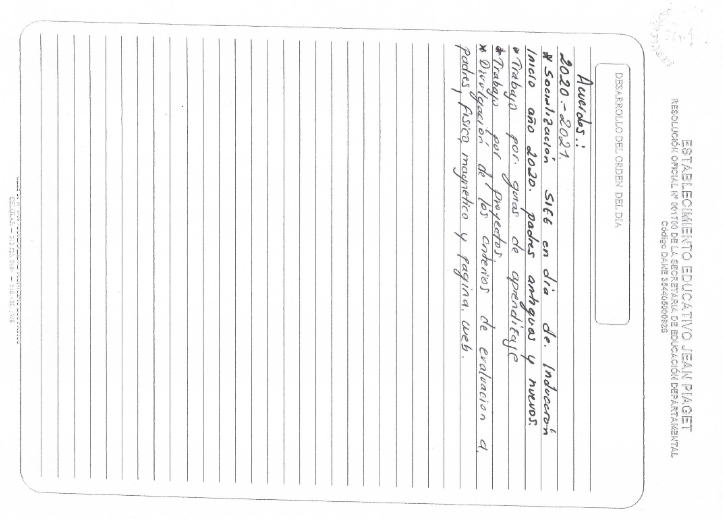 ESTABLECIMIENTO EDUCATIVO JEAN PIAGET
RESOLUCIÓN OFICIAL Nº 001700 DE LA SECRETARIA DE EDUCACIÓN DEPARTAMENTAL
Código DANE
DESARROLLO DEL ORDEN DEL DIA
Acuerdos:
2020 - 2021.
* Socialización SIEE en dia de Inducción
Inicio año 2020. padres antiguos y nuevos.
* Trabajo por guias de aprendizaje
* Trabajo por proyectos.
* Divulgación de los criterios de evaluación a
padres, fisico, magnetico y pagina web.